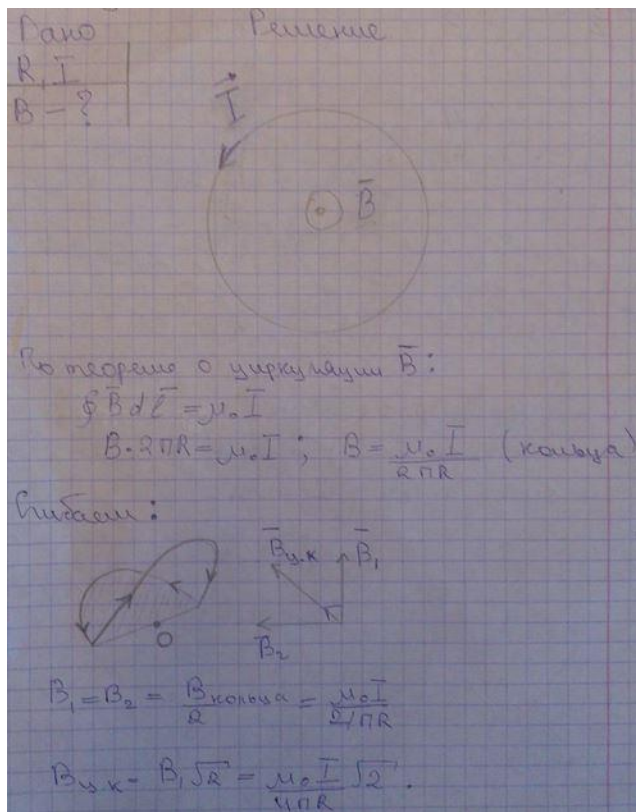 Дано Решение
R, I
B - ?
I
B̄
По теореме о циркуляции B̄:
∮B̄dℓ̄ = μ₀I
B·2πR = μ₀I; B = μ₀I/2πR (кольца)
Сгибаем:
B̄ц.к B̄₁
O
B̄₂
B₁ = B₂ = Bкольца/2 = μ₀I/
Bц.к = B₁√2 = μ₀I/4πR √2.